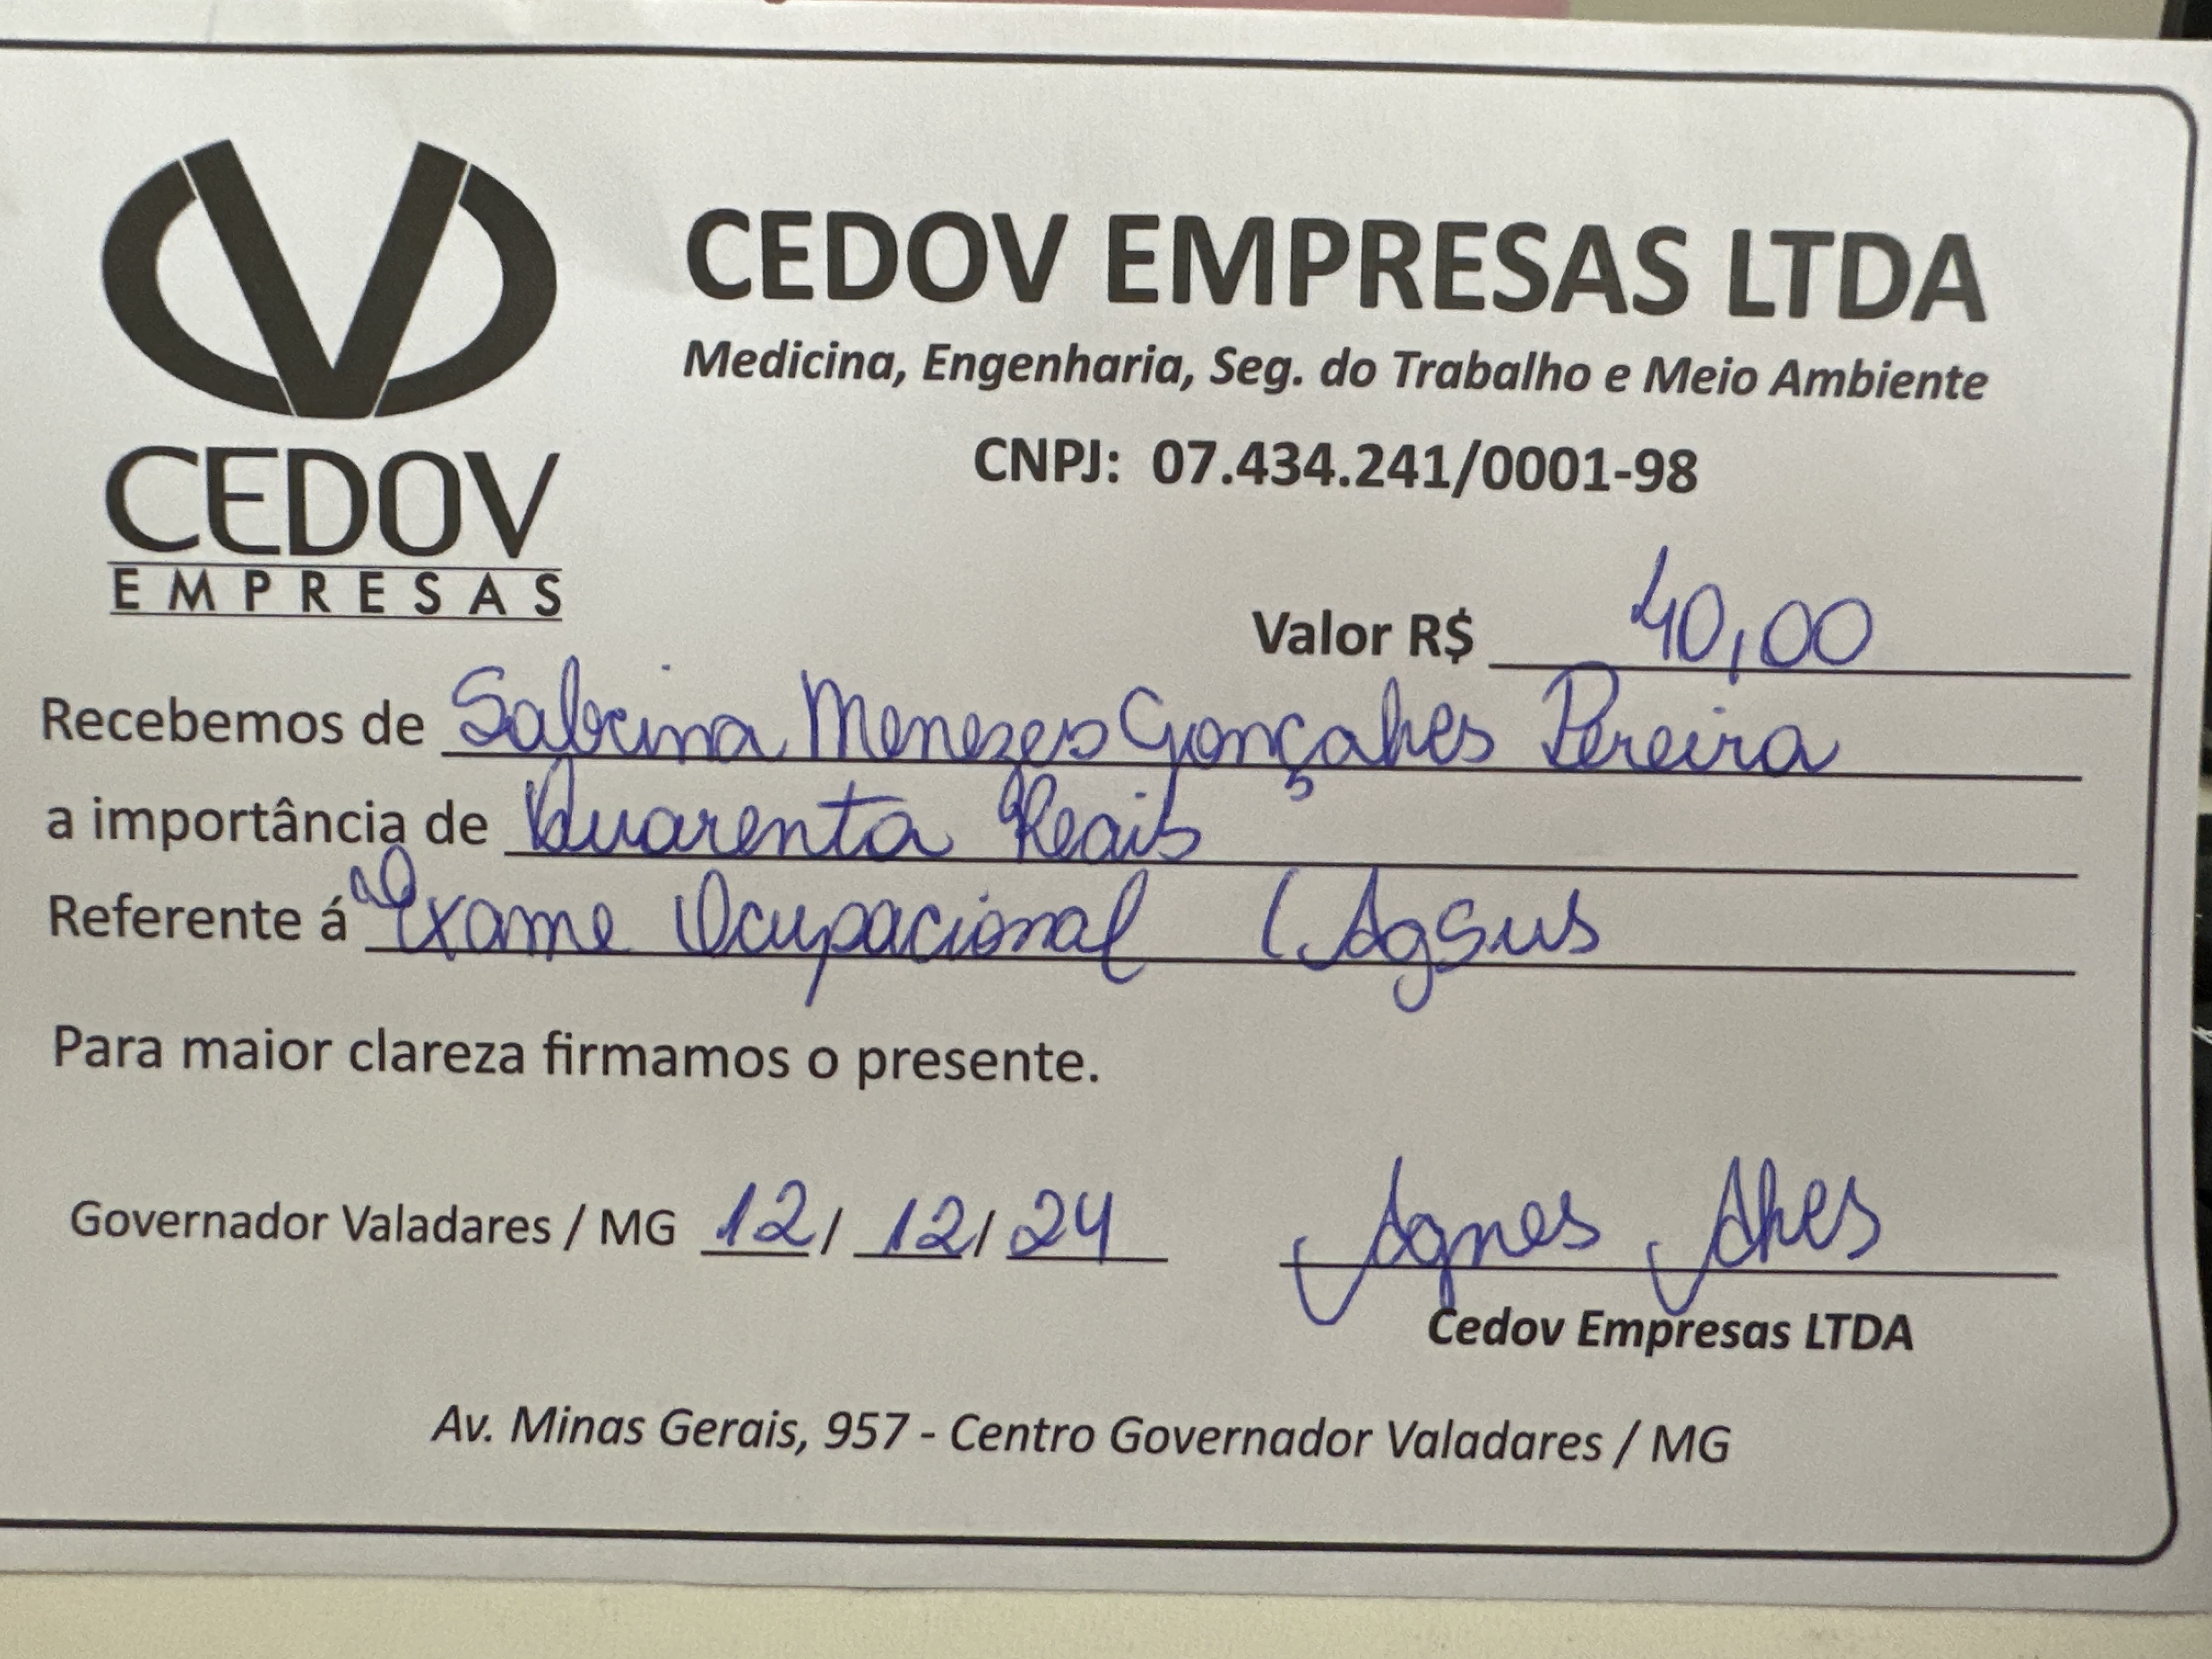 CEDOV
EMPRESAS
CEDOV EMPRESAS LTDA
Medicina, Engenharia, Seg. do Trabalho e Meio Ambiente
CNPJ: 07.434.241/0001-98
Valor R$ 40,00
Recebemos de Sabrina Menezes Gonçalves Pereira
a importância de Quarenta Reais
Referente á Exame Ocupacional (AgSus
Para maior clareza firmamos o presente.
Governador Valadares / MG 12/ 12/ 24
Agnes Alves
Cedov Empresas LTDA
Av. Minas Gerais, 957 - Centro Governador Valadares / MG